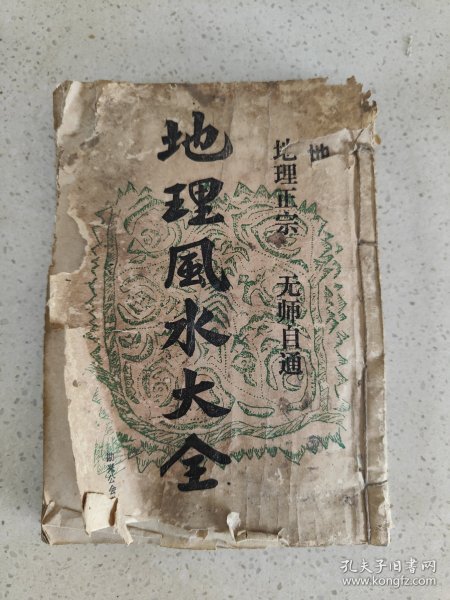 地理正宗　无师自通
地理風水大全
孔夫子旧书网
www.kongfz.com